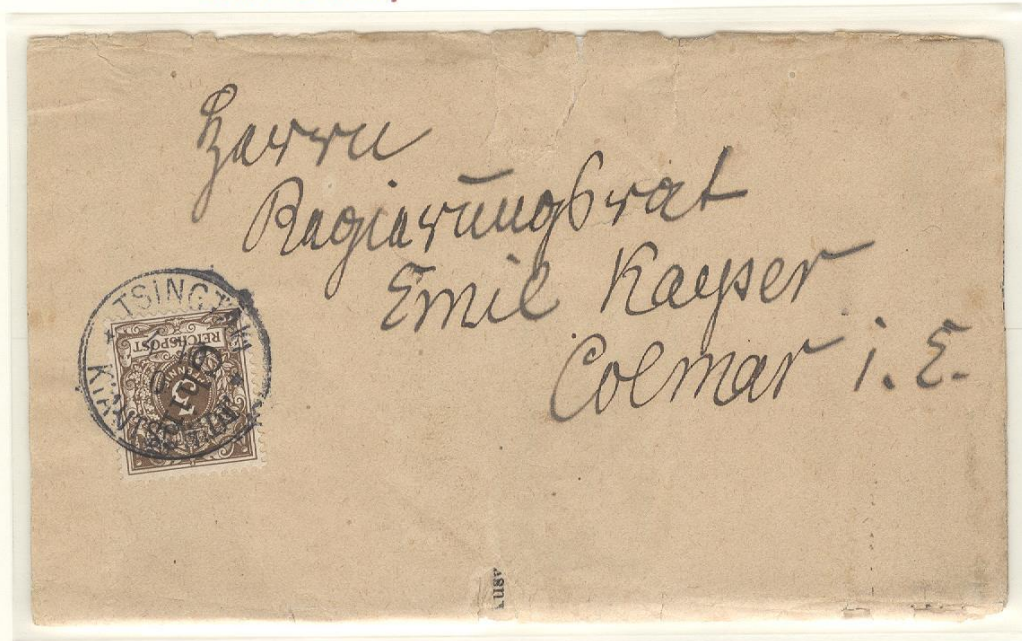 Herrn
Regierungsrat
Emil Kayser
Colmar i. E.
TSINGTAU
KIAUTSCHOU
REICHSPOST
3
China